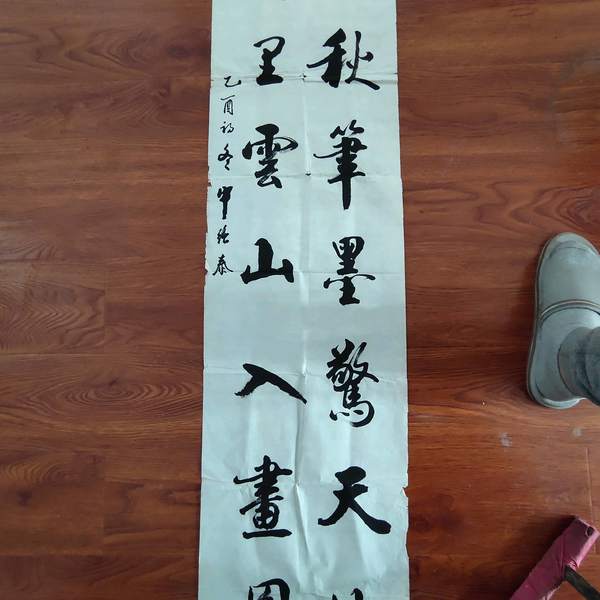 秋筆墨驚天
里雲山入畫
乙酉初冬